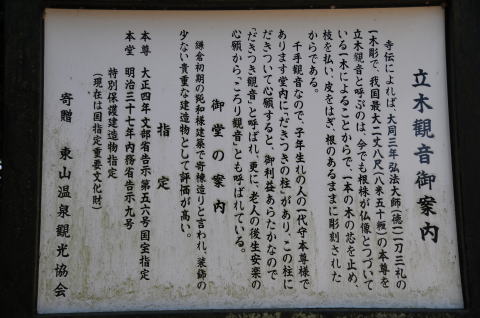 立木觀音御案内
寺伝によれば、大同三年弘法大師(徳一)一刀三礼の
一木彫で、我国最大二丈八尺(八米五十糎)の本尊を
立木観音と呼ぶのは、今でも根株が仏像とつづいて
いる一木によることからで、一本の木の芯を止め、
枝を払い、皮をはぎ、根のあるままに彫刻された
からである。
千手観音なので、子年生れの人の一代守本尊様で
あります堂内に「だきつきの柱」があり、この柱に
だきついて心願すると、御利益あらたかなので
「だきつき観音」と呼ばれ、更に、老人の後生安楽の
心願から「ころり観音」とも呼ばれている。
御堂の案内
鎌倉初期の純和様建築で寄棟造りと言われ、装飾の
少ない貴重な建造物として評価が高い。
指定
本尊 大正四年文部省告示第五六号国宝指定
本堂 明治三十七年内務省告示九号
特別保護建造物指定
(現在は国指定重要文化財)
寄贈 東山温泉観光協会